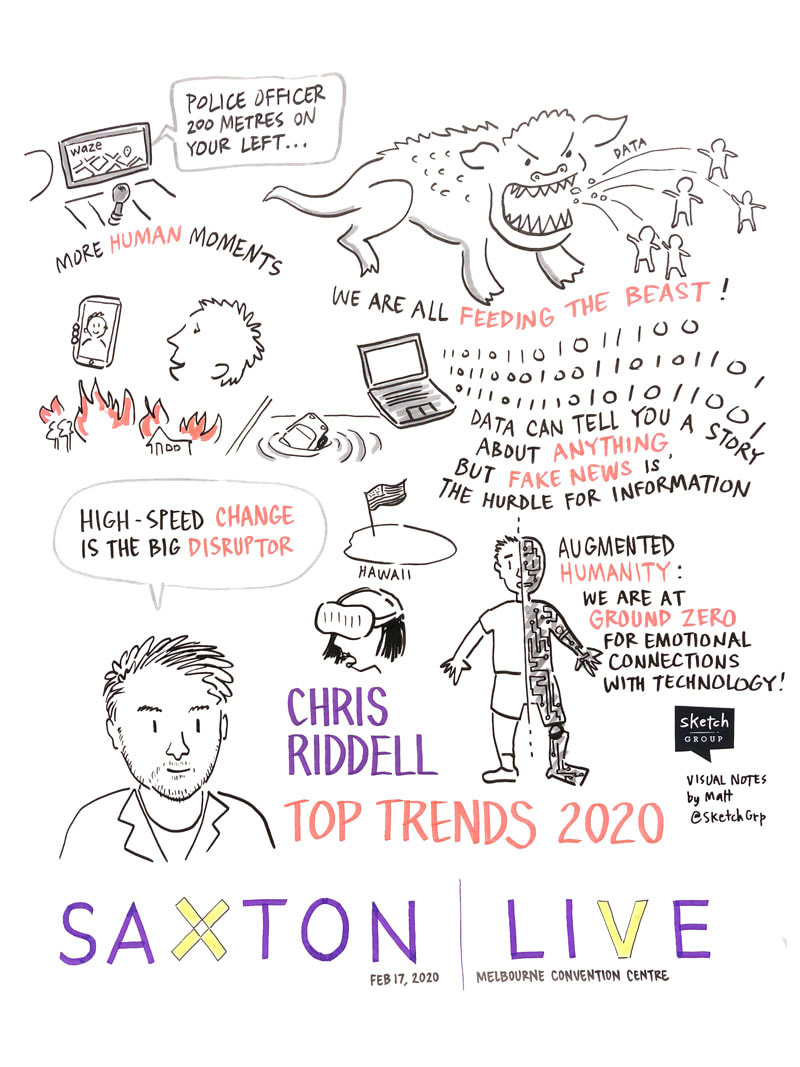 POLICE OFFICER
200 METRES ON
YOUR LEFT...
waze
MORE HUMAN MOMENTS
DATA
WE ARE ALL FEEDING THE BEAST!
110101101011100
1011000100110101101
01011011110101011001
DATA CAN TELL YOU A STORY
ABOUT ANYTHING,
BUT FAKE NEWS IS
THE HURDLE FOR INFORMATION
HIGH-SPEED CHANGE
IS THE BIG DISRUPTOR
HAWAII
AUGMENTED
HUMANITY:
WE ARE AT
GROUND ZERO
FOR EMOTIONAL
CONNECTIONS
WITH TECHNOLOGY!
CHRIS
RIDDELL
TOP TRENDS 2020
sketch
GROUP
VISUAL NOTES
by Matt
@sketchGrp
SAXTON LIVE
FEB 17, 2020 MELBOURNE CONVENTION CENTRE